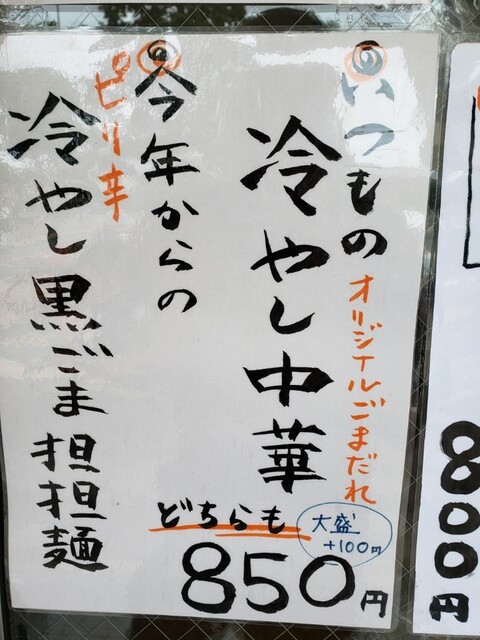 いつもの
オリジナルごまだれ
冷やし中華
今年からの
ピリ辛
冷やし黒ごま担担麺
どちらも
850円
大盛
+100円
800円